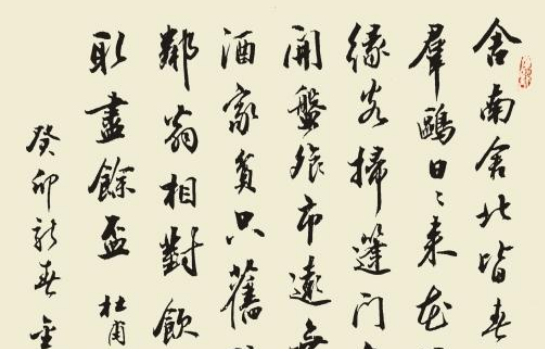 舍南舍北皆春
羣鷗日〻来花
緣客掃蓬門
開盤飧市遠無
酒家貧只舊
鄰翁相對飲
取盡餘盃 杜甫
癸卯新春